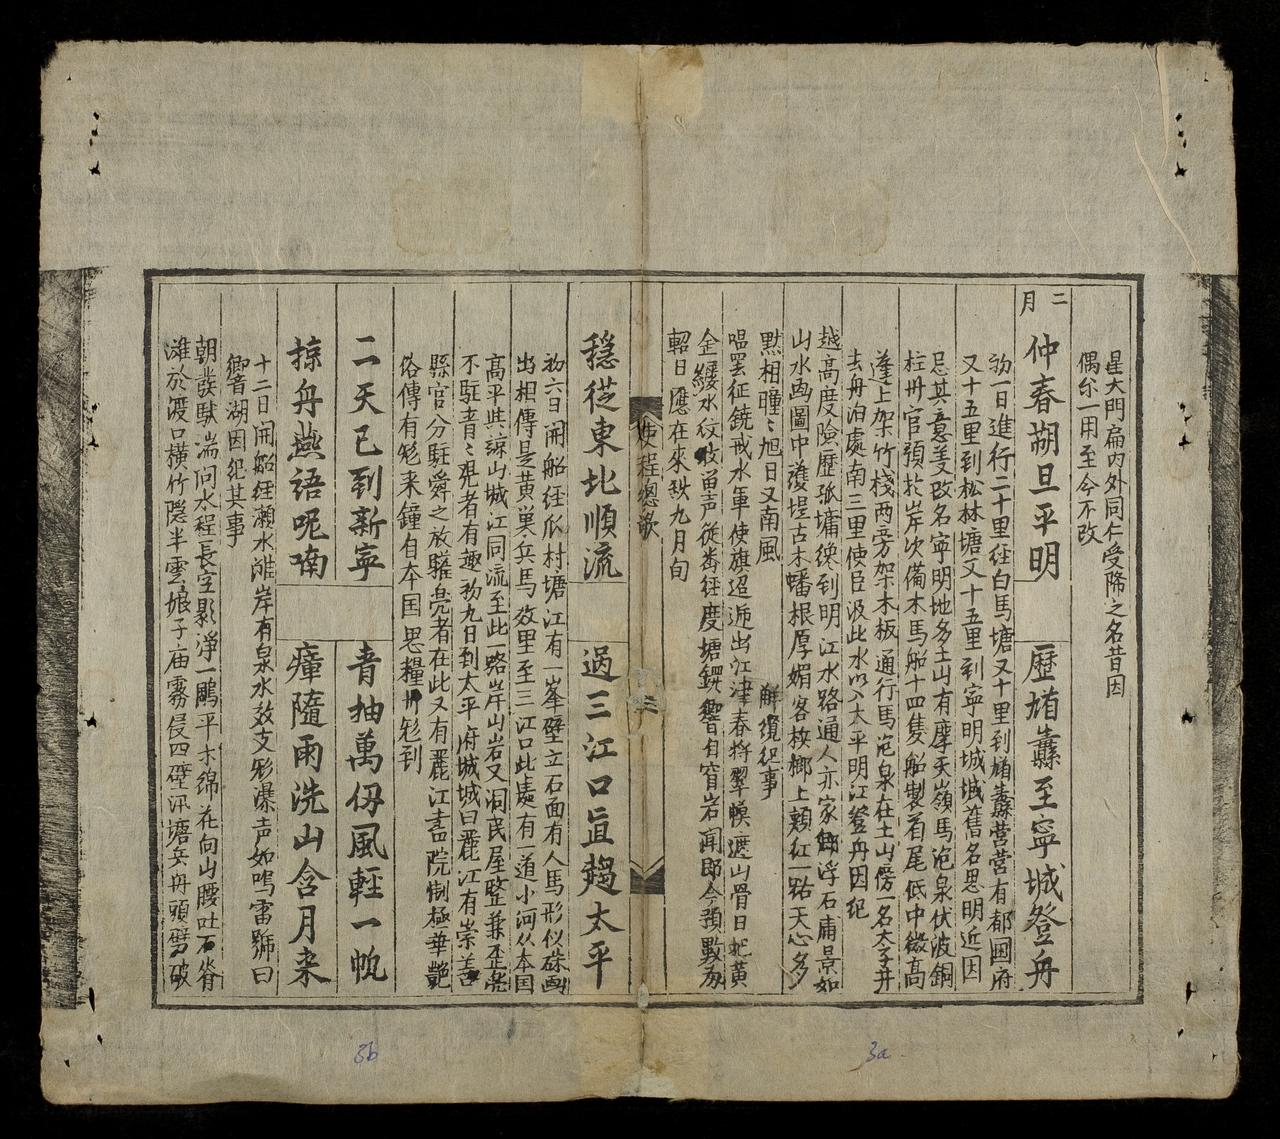 星大門扁內外同仁受降之名昔因
偶尔一用至今不改
二月
仲春朔旦平明 歷馗纛至寧城登舟
初一日進行二十里徑白馬塘又十里到馗纛營營有都閫府
又十五里到松林塘又十五里到寧明城城舊名思明近因
忌其意姜改名寧明地多土山有摩天嶺馬跑泉伏波銅
柱卅官預於岸次備木馬船十四隻船製首尾低中微高
蓬上架竹棧兩旁架木板通行馬跑泉在土山傍一名太子井
去舟泊處南三里使臣汲此水以入太平明江登舟因紀
越高度險歷孤墉纔到明江水路通人亦家鄉浮石甫景如
山水画圖中濩堤古木蟠根厚媚客桉榔上頰紅一路天心多
黙相曈〻旭日又南風
解纜紀事
唱罷征鐃戒水軍使旗迢遞出江津春将翠幙遮山骨日把黄
金縷水紋吹笛声從畨徑度塘鑼響自窅岩闻郎今預數旋
軺日應在來秋九月旬
使程總歌
三
穩從東北順流 過三江口直趨太平
初六日開船徑瓜村塘江有一峯壁立石面有人馬形似硃画
出相傳是黄巢兵馬效里至三江口此處有一道小河从本囯
高平共諒山城江同流至此一路岸山岩又洞民屋整兼歪
不駐青〻皃者有趣初九日到太平府城城曰麗江有崇善
縣官分駐舜之放驩兠者在此又有麗江書院制極華艶
俗傳有䰟来鐘自本囯思糧卅䰟到
二天已到新寧 青抽萬仭風輕一帆
掠舟燕語呢喃 瘴隨雨洗山含月来
十二日開船徑瀨水滩岸有泉水效支彩瀑声如鳴雷號曰
響音湖因紀其事
朝發馱湍问水程長空影淨一鵰平木綿花向山腰吐石脊
滩於渡口横竹隱半雲娘子庙霧侵四壁汛塘兵舟頭劈破
3b
3a